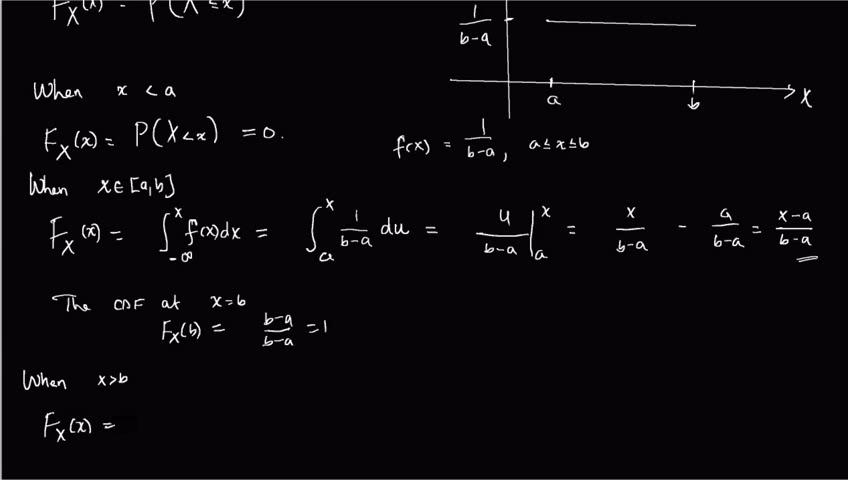 F_X(x) = P(X ≤ x)
1/(b-a)
a b X
When x < a
F_X(x) = P(X < x) = 0.
f(x) = 1/(b-a), a ≤ x ≤ b
When x ∈ [a,b]
F_X(x) = ∫_{-∞}^{x} f(x)dx = ∫_{a}^{x} 1/(b-a) du = u/(b-a) |_{a}^{x} = x/(b-a) - a/(b-a) = (x-a)/(b-a)
The CDF at x=b
F_X(b) = (b-a)/(b-a) = 1
When x>b
F_X(x) =